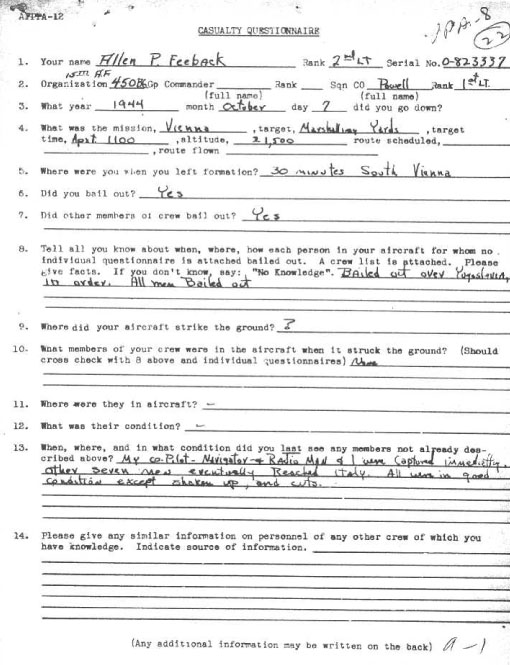 AFPPA-12
JPA-8
22
CASUALTY QUESTIONNAIRE
1. Your name Allen P. Feeback Rank 2nd LT Serial No. O-823337
15th A.F.
2. Organization 450Bb Gp Commander Rank Sqn CO Powell Rank 1st LT.
(full name) (full name)
3. What year 1944 month October day 7 did you go down?
4. What was the mission, Vienna , target, Marshalling Yards , target
time, Apx. 1100 ,altitude, 21,500 route scheduled,
,route flown
5. Where were you when you left formation? 30 minutes South Vienna
6. Did you bail out? Yes
7. Did other members of crew bail out? Yes
8. Tell all you know about when, where, how each person in your aircraft for whom no
individual questionnaire is attached bailed out. A crew list is attached. Please
give facts. If you don't know, say: "No Knowledge". Bailed out over Yugoslavia,
in order. All men Bailed out
9. Where did your aircraft strike the ground? ?
10. What members of your crew were in the aircraft when it struck the ground? (Should
cross check with 8 above and individual questionnaires) None
11. Where were they in aircraft? –
12. What was their condition? –
13. When, where, and in what condition did you last see any members not already des-
cribed above? My co-Pilot - Navigator & Radio Man & I were Captured immediatly.
other seven men eventually Reached Italy. All were in good
condition except shaken up, and cuts.
14. Please give any similar information on personnel of any other crew of which you
have knowledge. Indicate source of information.
(Any additional information may be written on the back) a-1